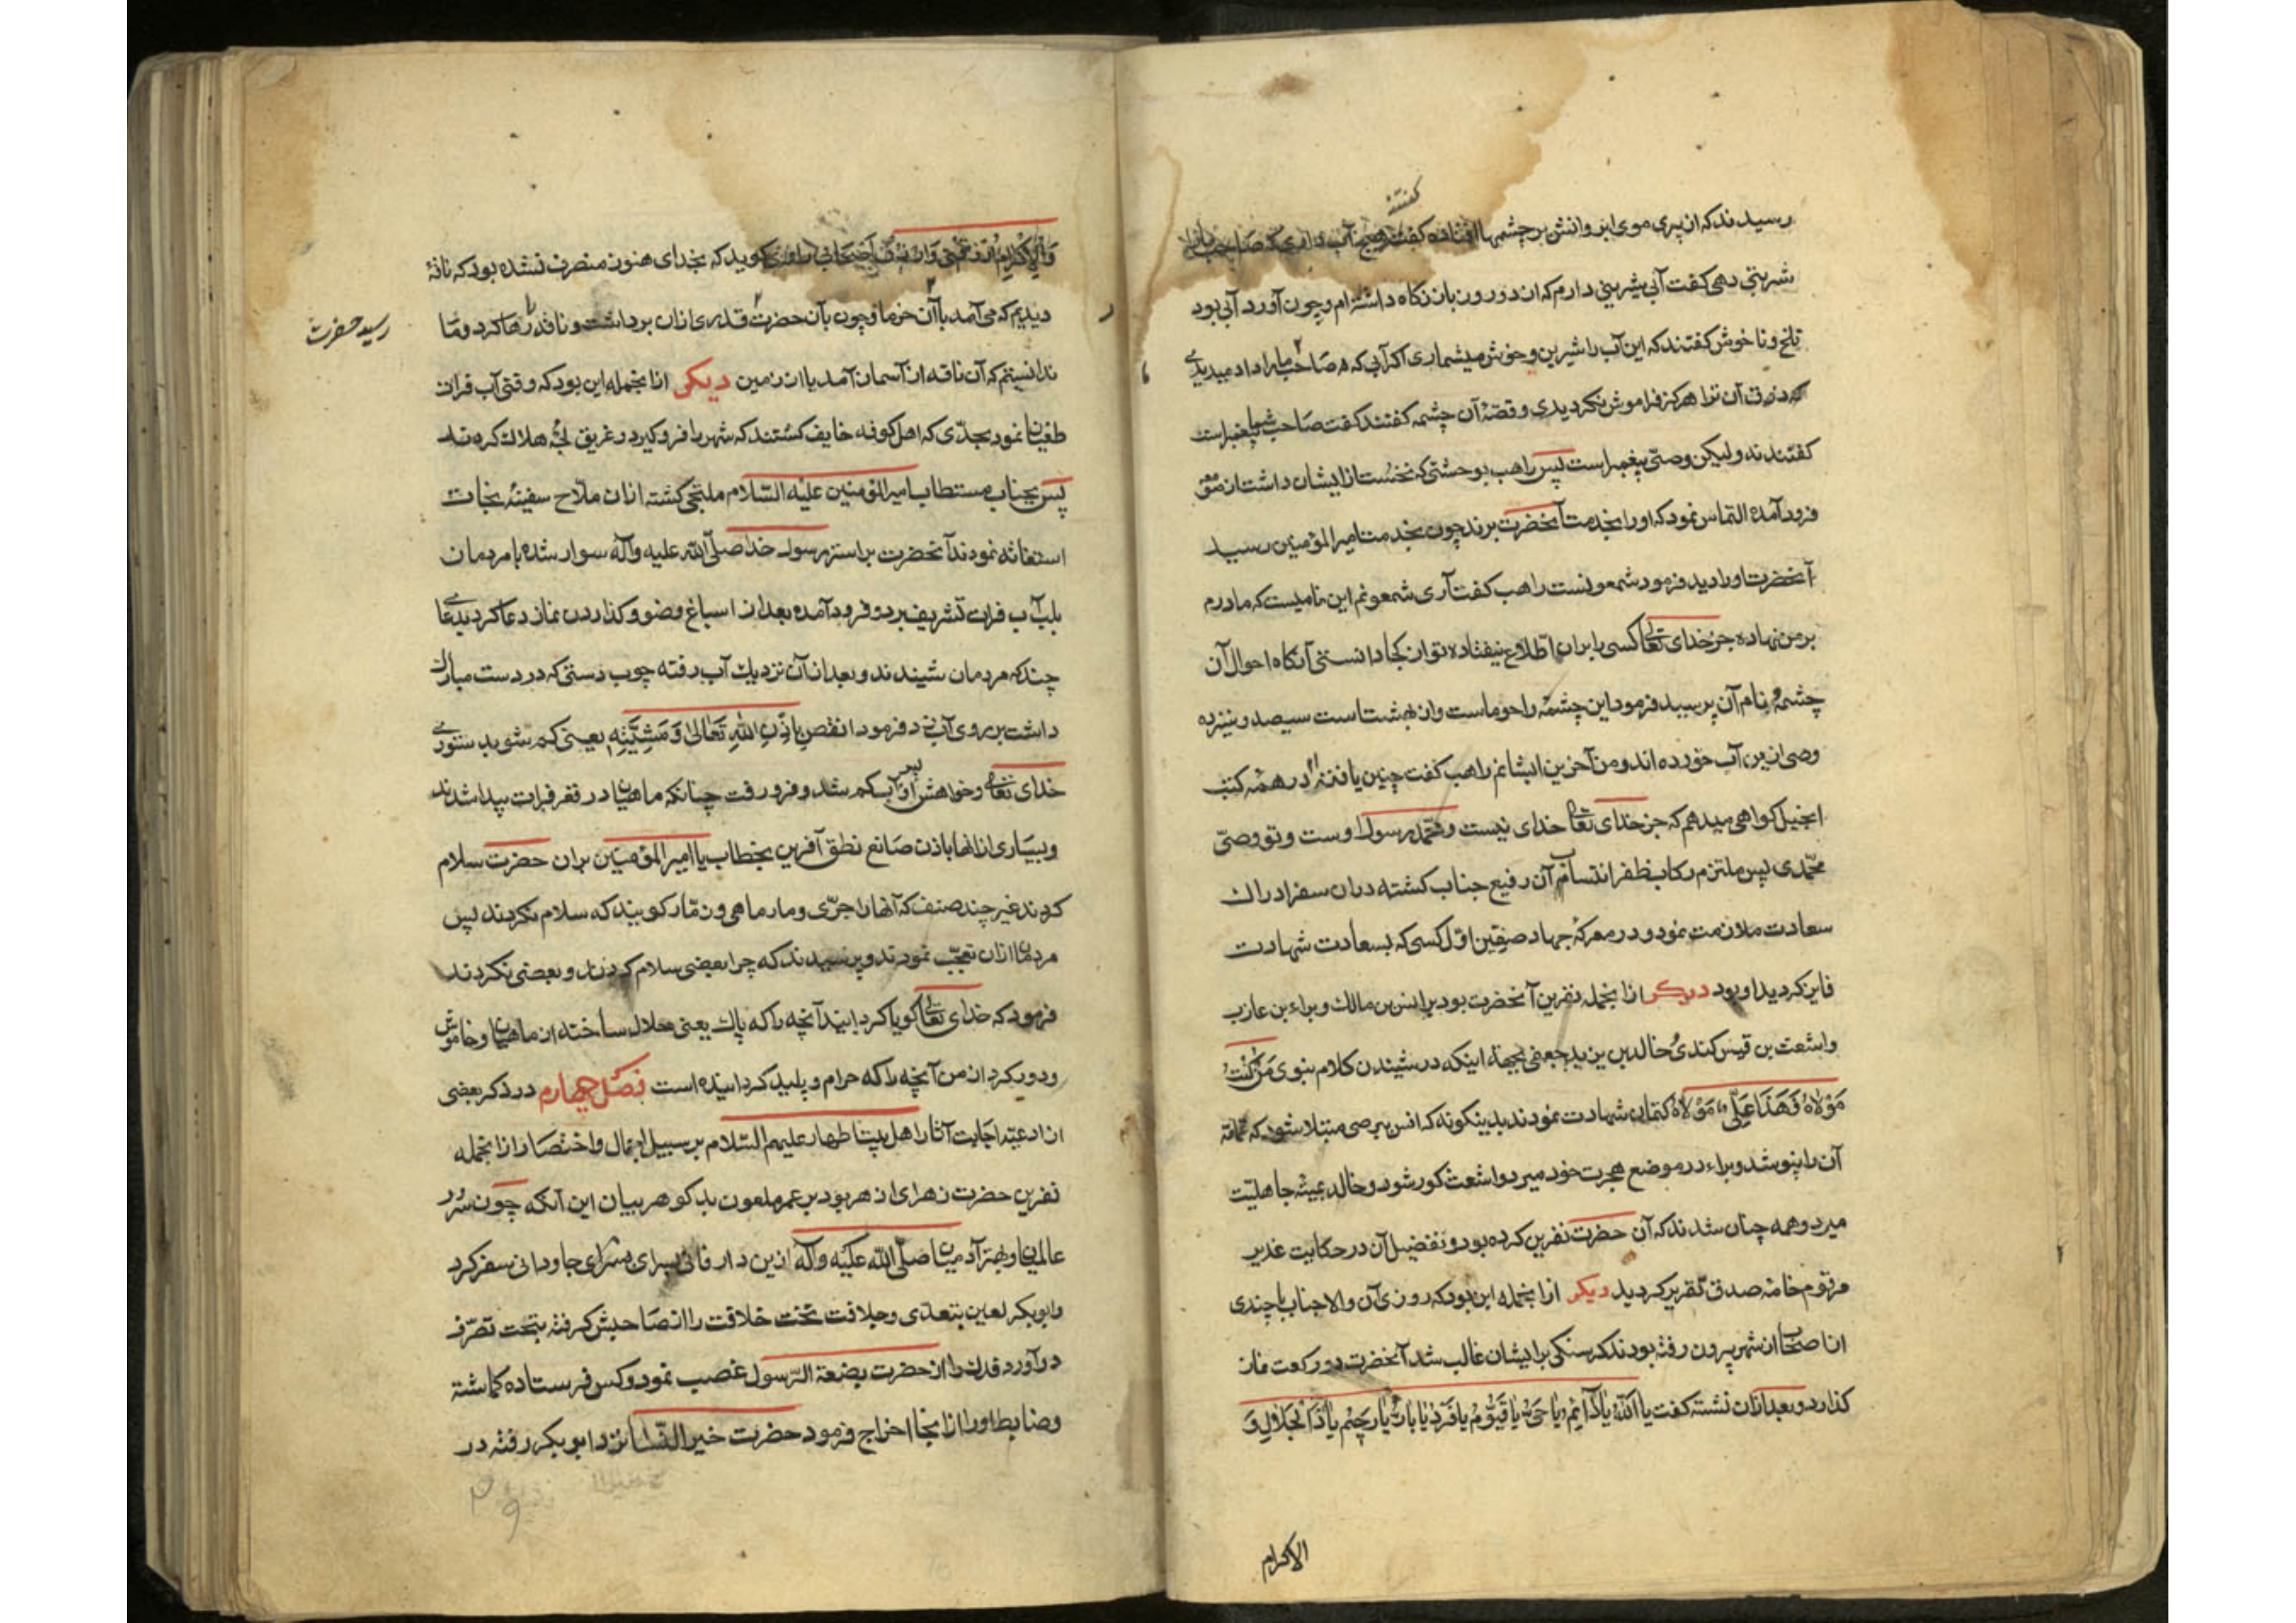 گفتند
رسیدند که از پیری موی ابروانش بر چشمها افتاده گفتند هیچ آب داری که صاحب ما را
شربتی دهی گفت آبی شیرینی دارم که از دو روز باز نگاه داشته‌ام و چون آورد آبی بود
تلخ و ناخوش گفتند که این آب را شیرین و خوش میشماری اگر آبی که صاحب ما داد میدیدی
ذوق آن ترا هرگز فراموش نکردیدی و قصّهٔ آن چشمه گفتند گفت صاحب شما پیغمبر است
گفتند نه ولیکن وصیّ پیغمبر است پس راهب بوحشتی که نخست از ایشان داشت از
فرود آمده التماس نمود که اورا بخدمت آنحضرت برند چون بخدمت امیرالمؤمنین رسید
آنحضرت اورا دید فرمود شمعونست راهب گفت آری شمعونم این نامیست که مادرم
بر من نهاده جز خدای تعالی کسی را بران اطّلاع نیفتاده تو از کجا دانستی آنگاه احوال آن
چشمه و نام آن پرسید فرمود این چشمه راحوماست و از بهشتست سیصد و سیزده
وصی ازین آب خورده‌اند و من آخرین ایشانم راهب گفت چنین یافته‌ام در همه کتب
انجیل گواهی میدهم که جز خدای تعالی خدای نیست و محمّد رسول اوست و تو وصیّ
محمّدی پس ملتزم رکاب ظفر انتساب آن رفیع جناب گشته دران سفر ادراک
سعادت ملازمت نمود و در معرکهٔ جهاد صفّین اوّل کسی که بسعادت شهادت
فایز گردید او بود دیگر ازانجمله نفرین آنحضرت بود بر انس بن مالک و براء بن عازب
و اشعث بن قیس کندی و خالد بن یزید جعفی بجههٔ اینکه در شنیدن کلام نبوی مَن کُنتُ
مَوْلَاهُ فَهَذَا عَلِیٌّ مَوْلَاهُ کتمان شهادت نمودند بدینگونه که انس ببرصی مبتلا شود که عمامه
آن را نپوشد و براء در موضع هجرت خود میرد و اشعث کور شود و خالد بمیتهٔ جاهلیّت
میرد و همه چنان شدند که آن حضرت نفرین کرده بود و تفضیل آن در حکایت غدیر
مرقوم خامهٔ صدق تقریر گردید دیگر ازانجمله این بود که روزی آن والاجناب با چندی
از اصحاب از شهر بیرون رفته بودند گرسنگی برایشان غالب شد آنحضرت دو رکعت نماز
گذارد و بعد ازان نشسته گفت یا اللّٰهُ یا دَائِمُ یا حَیُّ یا قَیُّومُ یا فَرْدُ یا بَارُّ یا رَحِیمُ یا ذَا الْجَلَالِ وَ
الاکرام
وَالْاِکْرَامِ راوی گوید که بخدای هنوز منصرف نشده بود که ناقهٔ
دیدیم که می‌آمد با آن خرما و چون بآن حضرت قدری ازان برداشت و ناقه را رها کرد و ما
رسید حضرت
ندانستیم که آن ناقه از آسمان آمد یا از زمین دیگر ازانجمله این بود که وقتی آب فرات
طغیان نمود بحدّی که اهل کوفه خایف گشتند که شهر را فرو گیرد و غریق لجّهٔ هلاک کردند
پس بجناب مستطاب امیرالمؤمنین علیه السّلام ملتجی گشته ازان ملّاح سفینهٔ نجات
استغاثه نمودند آنحضرت براستر رسول خدا صلّی اللّه علیه و آله سوار شده با مردمان
بلب آب فرات تشریف برد و فرود آمده بعد از اسباغ وضو و گذاردن نماز دعا کرد بدعایی
چند که مردمان شنیدند و بعد ازآن نزدیک آب رفته چوب دستی که در دست مبارک
داشت بر روی آب زد فرمود انقص بِاِذْنِ اللّٰهِ تَعَالَی وَ مَشِیَّتِهِ یعنی کم شو بدستوری
خدای تعالی و خواهش او پس آب کم شد و فرو رفت چنانکه ماهیان در قعر فرات پیدا شدند
و بسیاری ازانها باذن صانع نطق آفرین بخطاب یا امیرالمؤمنین بران حضرت سلام
کردند غیر چند صنف که آنها را جرّی و مارماهی و زمّار گویند که سلام نکردند پس
مردمان ازان تعجّب نمودند و پرسیدند که چرا بعضی سلام کردند و بعضی نکردند
فرمود که خدای تعالی گویا گردانید آنچه را که پاک یعنی حلال ساخته از ماهیان و خاموش
و دور کرد از من آنچه را که حرام و پلید گردانیده است فصل چهارم در ذکر بعضی
از ادعیهٔ اجابت آثار اهل بیت اطهار علیهم السّلام بر سبیل اجمال و اختصار ازانجمله
نفرین حضرت زهرای ازهر بود بر عمر ملعون بد گوهر بیان این آنکه چون سرور
عالمیان و بهتر آدمیان صلّی اللّه علیه و آله ازین دار فانی بسرای جاودانی سفر کرد
و ابوبکر لعین بتعدّی و جلافت تخت خلافت را از صاحبش گرفته بتحت تصرّف
درآورد فدک را از حضرت بضعة الرّسول غصب نمود و کس فرستاده گماشته
و ضابط اورا ازانجا اخراج فرمود حضرت خیر النّسا نزد ابوبکر رفته در